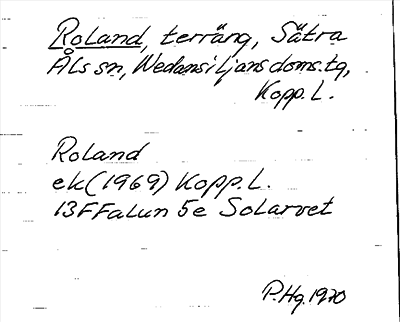 Roland, terräng, Sätra
Åls sn, Nedansiljans doms.tg,
Kopp.L.
Roland
ek (1969) Kopp.L.
13F Falun 5e Solarvet
P.Hg. 1970